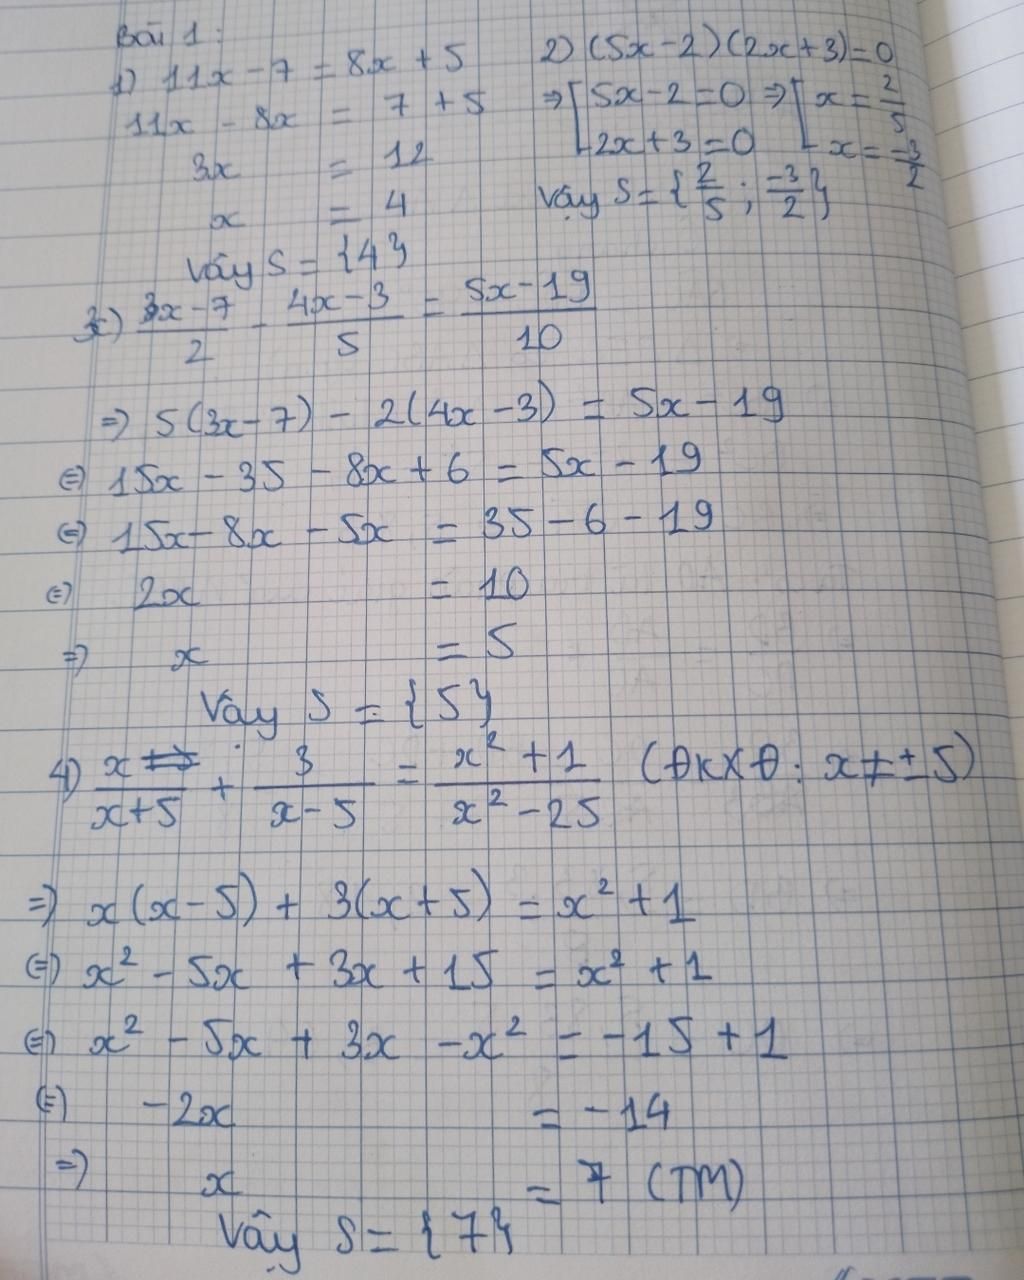 Bài 1:
1) 11x - 7 = 8x + 5
11x - 8x = 7 + 5
3x = 12
x = 4
Vậy S = {4}
2) (5x - 2)(2x + 3) = 0
⇒ [ 5x - 2 = 0 ⇒ [ x = 2/5
2x + 3 = 0 x = -3/2
Vậy S = {2/5 ; -3/2}
3) (3x - 7)/2 - (4x - 3)/5 = (5x - 19)/10
⇒ 5(3x - 7) - 2(4x - 3) = 5x - 19
⇔ 15x - 35 - 8x + 6 = 5x - 19
⇔ 15x - 8x - 5x = 35 - 6 - 19
⇔ 2x = 10
⇒ x = 5
Vậy S = {5}
4) x/(x+5) + 3/(x-5) = (x² + 1)/(x² - 25) (ĐKXĐ: x ≠ ±5)
⇒ x(x - 5) + 3(x + 5) = x² + 1
⇔ x² - 5x + 3x + 15 = x² + 1
⇔ x² - 5x + 3x - x² = -15 + 1
⇔ -2x = -14
⇒ x = 7 (TM)
Vậy S = {7}